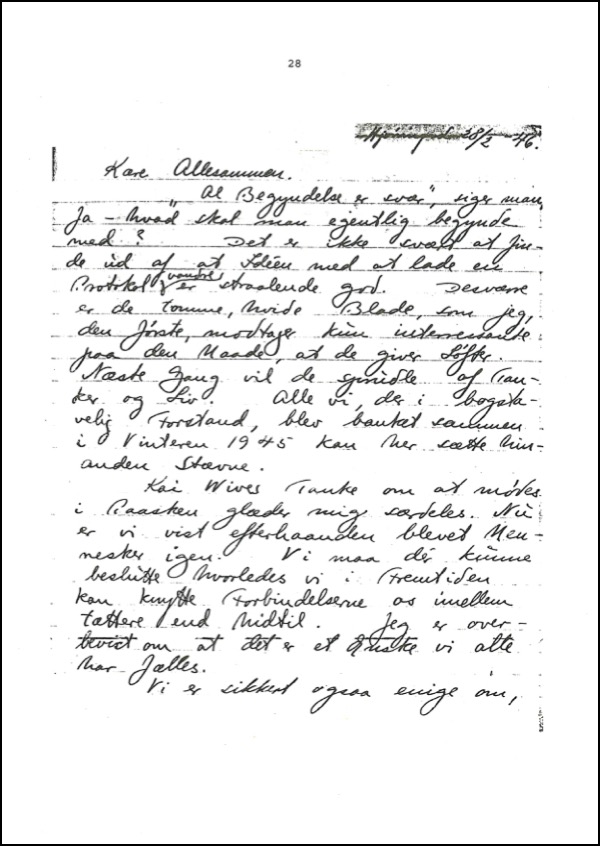 28
28/2 -46.
Kære Allesammen.
"Al Begyndelse er svær", siger man,
Ja - hvad skal man egentlig begynde
med? Det er ikke svært at fin-
de ud af at Idéen med at lade en
Protokol vandre er straalende god. Desværre
er de tomme, hvide Blade, som jeg,
den første, modtager kun interressante
paa den Maade, at de giver Løfter.
Næste Gang vil de sprudle af Tan-
ker og Liv. Alle vi, der i bogsta-
velig Forstand, blev banket sammen
i Vinteren 1945 kan her sætte hin-
anden Stævne.
Kai Wives Tanke om at mødes
i Paasken glæder mig særdeles. Nu
er vi vist efterhaanden blevet Men-
nesker igen. Vi maa dér kunne
beslutte hvorledes vi i Fremtiden
kan knytte Forbindelserne os imellem
tættere end hidtil. Jeg er over-
bevist om at det er et Ønske vi alle
har fælles.
Vi er sikkert ogsaa enige om,